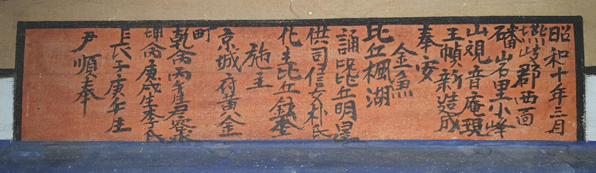 昭和十年三月
郡西面
磻岩里小峰
山視音庵現
王幀新造成
奉安
金魚
比丘楓湖
誦呪比丘明星
供司信女朴氏
化主比丘
施主
京城府黄金
町
乾命丙
坤命庚戌生李氏
長子庚午生
尹順奉